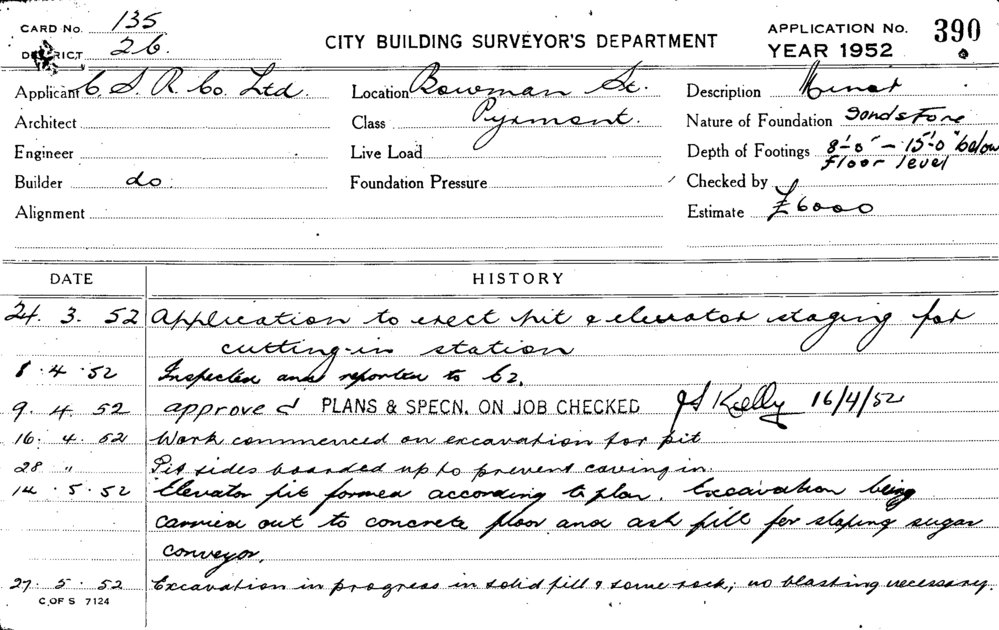 CARD No. 135
DISTRICT 26.
CITY BUILDING SURVEYOR'S DEPARTMENT
APPLICATION No. 390
YEAR 1952
Applicant C. S. R. Co. Ltd.
Location Bowman St.
Description Minor
Architect
Class Pyrmont.
Nature of Foundation Sandstone
Engineer
Live Load
Depth of Footings 8'-0" – 15'-0" below
floor level
Builder do.
Foundation Pressure
Checked by
Alignment
Estimate £6000
DATE HISTORY
24. 3. 52 Application to erect pit & elevator staging for
cutting-in station
8. 4. 52 Inspected and reported to C2.
9. 4. 52 approved PLANS & SPECN. ON JOB CHECKED JS Kelly 16/4/52
16. 4. 52 Work commenced on excavation for pit
28 " Pit sides boarded up to prevent caving in.
14. 5. 52 Elevator pit formed according to plan. Excavation being
carried out to concrete floor and ash fill for sloping sugar
conveyor.
27. 5. 52 Excavation in progress in solid fill & some rock; no blasting necessary.
C. OF S 7124